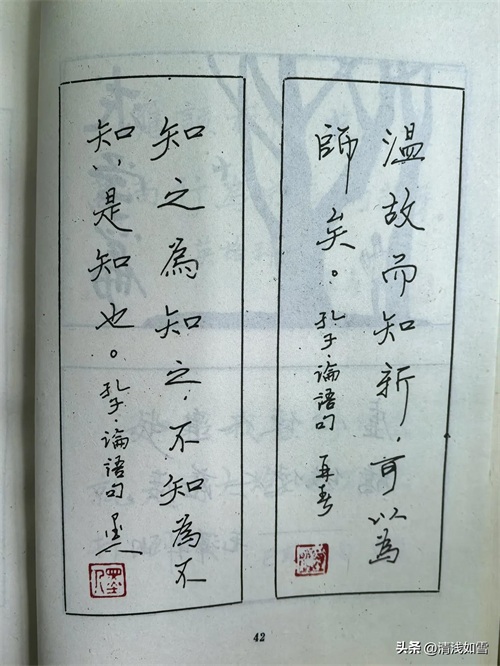 温故而知新，可以為
師矣。孔子·論語句 再春
知之為知之，不知為不
知，是知也。孔子·論語句
42
头条 @清浅如雪